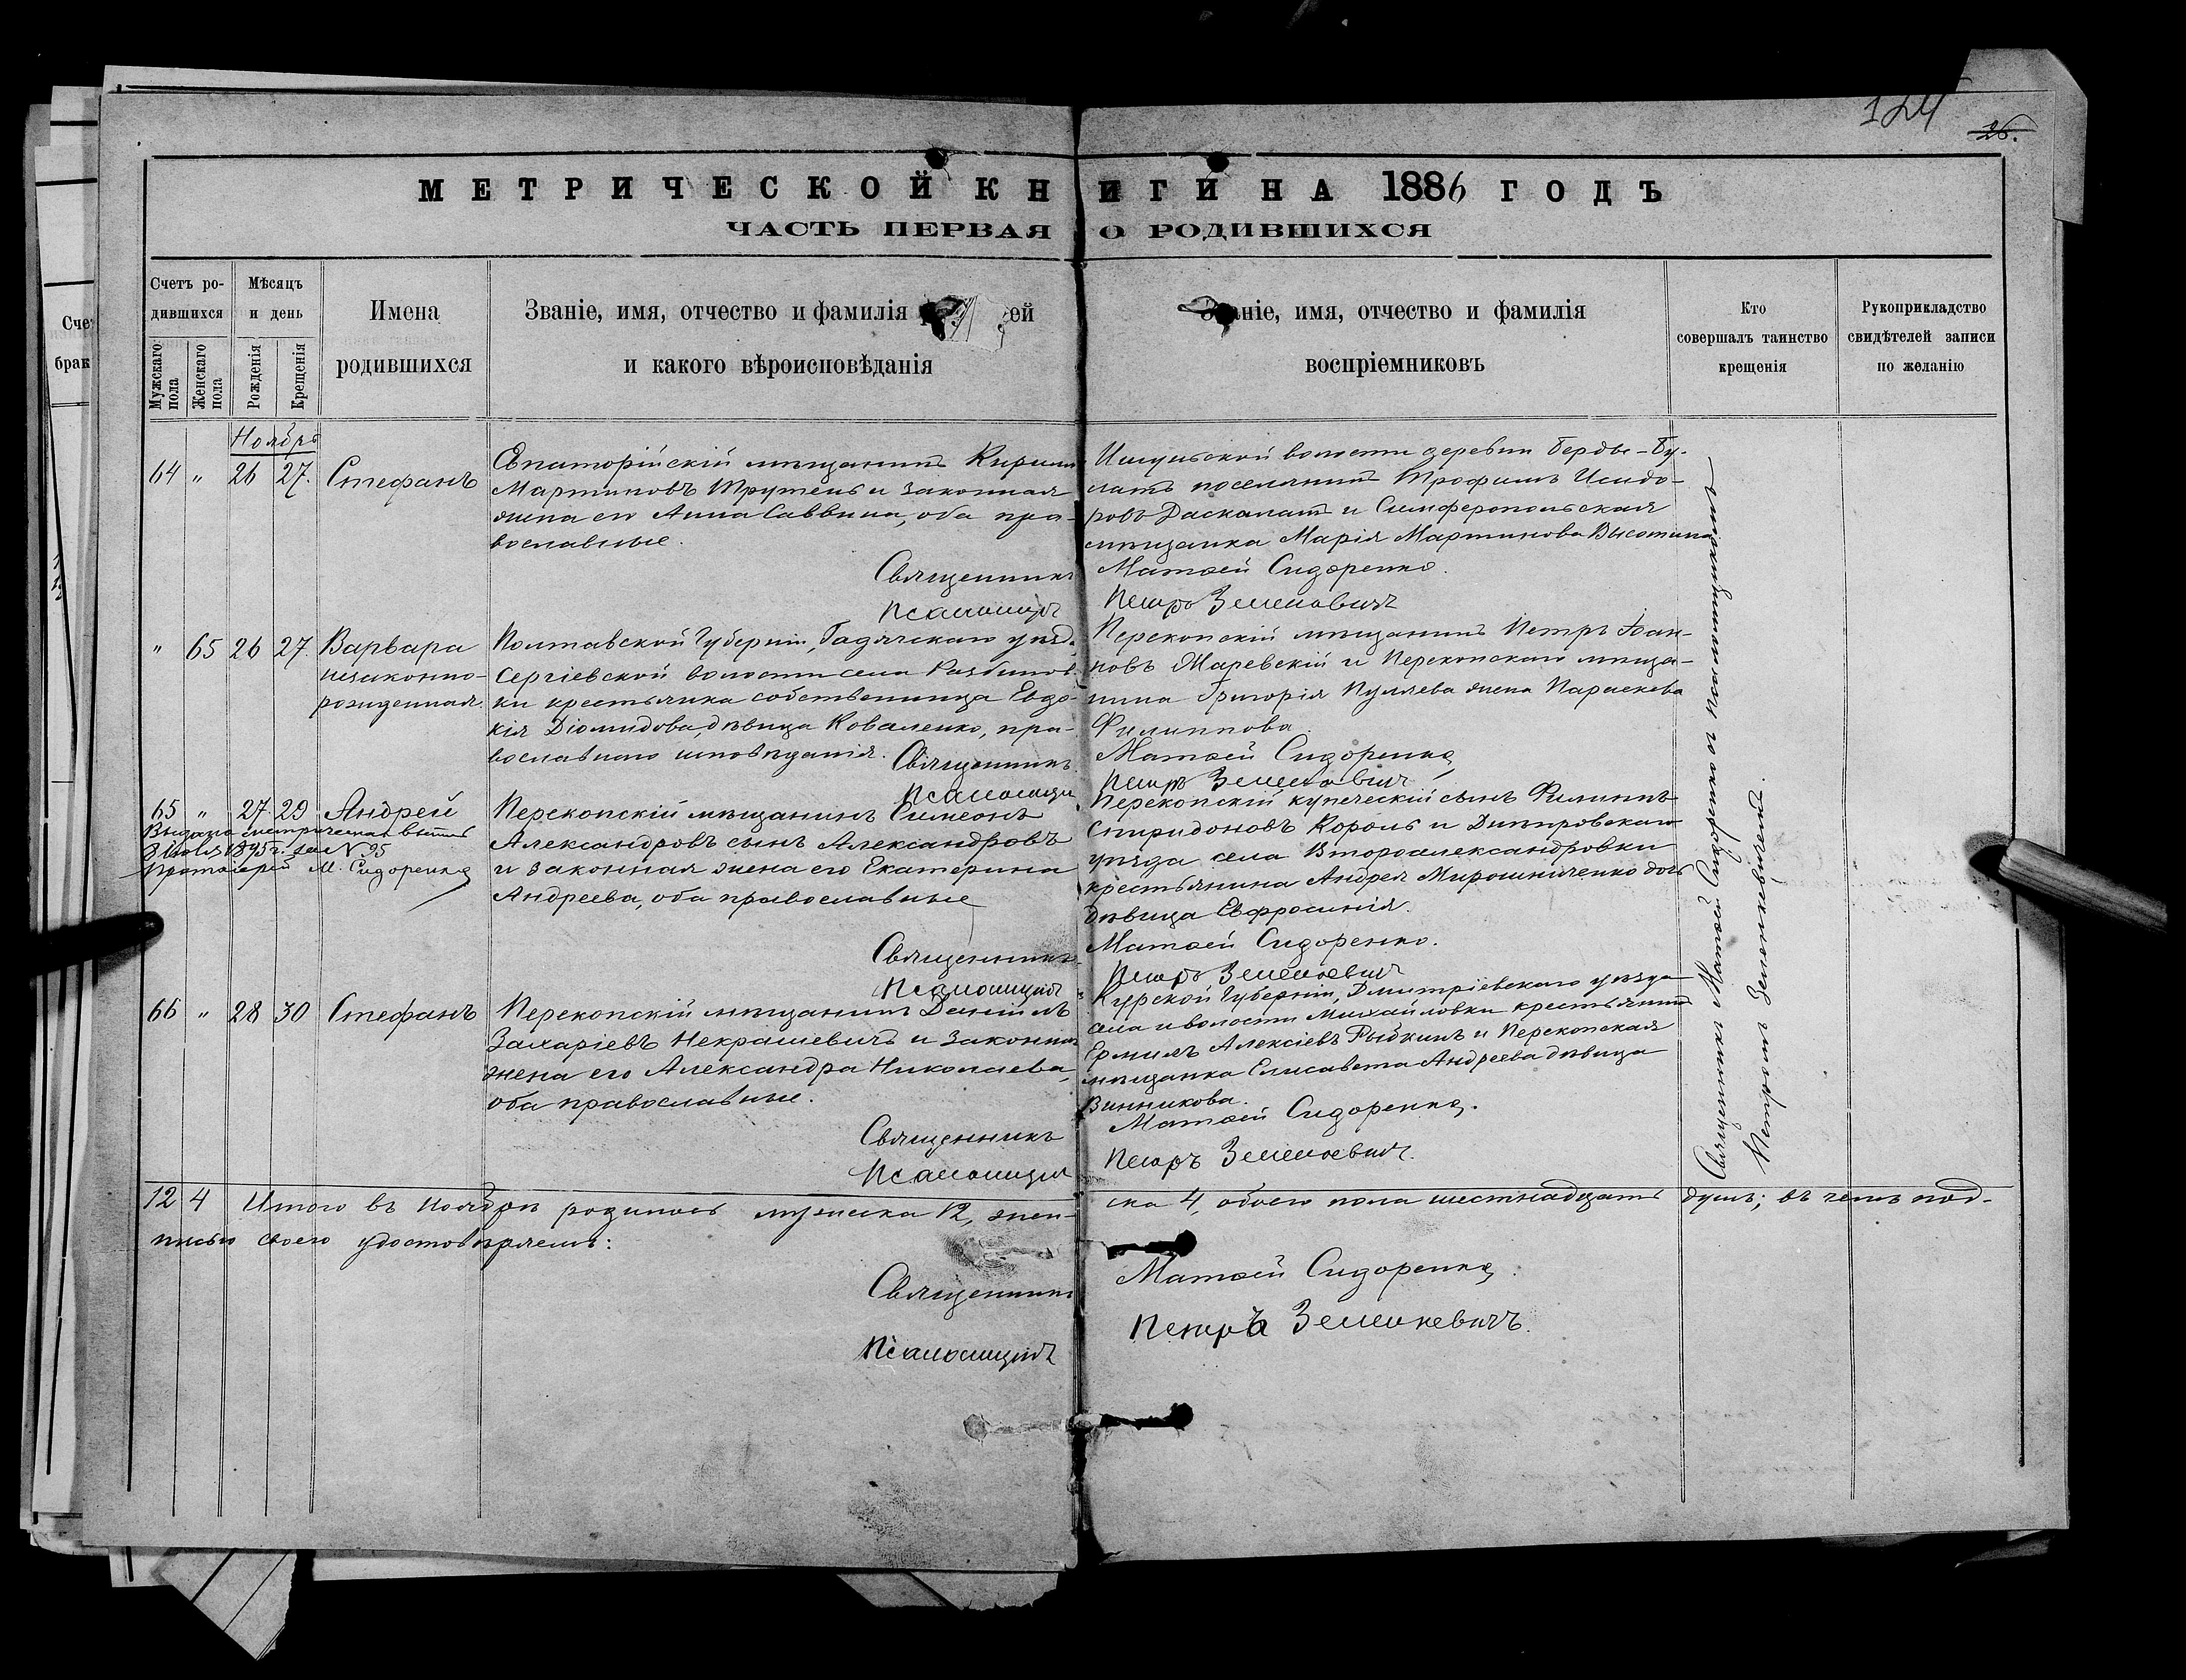 124
26.
МЕТРИЧЕСКОЙ КНИГИ НА 1886 ГОДЪ
ЧАСТЬ ПЕРВАЯ О РОДИВШИХСЯ
Счетъ ро-
дившихся
Мужскаго пола
Женскаго пола
Мѣсяцъ
и день
Рожденія
Крещенія
Имена
родившихся
Званіе, имя, отчество и фамилія ей
и какого вѣроисповѣданія
Званіе, имя, отчество и фамилія
воспріемниковъ
Кто
совершалъ таинство
крещенія
Рукоприкладство
свидѣтелей записи
по желанію
Сче
брак
Ноябрь
64 " 26 27. Стефанъ
Евпаторійскій мѣщанинъ Кирилл
Мартиновъ Трутень и законная
жена его Анна Саввина, оба пра-
вославные.
Священникъ
Псаломщикъ
Ишуньской волости деревни Берды-Бу-
латъ поселянинъ Трофимъ Исидо-
ровъ Даскалатъ и Симферопольская
мѣщанка Марія Мартинова Высотина
Матѳей Сидоренко.
Петръ Земенкевичъ
" 65 26 27. Варвара
незаконно-
рожденная.
Полтавской Губерніи, Гадячскаго уѣзд.
Сергіевской волости села Разбитов-
ки крестьянка собственница Евдо-
кія Діомидова, дѣвица Коваленко, пра-
вославнаго исповѣданія.
Священникъ
Псаломщик
Перекопскій мѣщанинъ Петръ Іоан-
новъ Маревскій и Перекопскаго мѣща-
нина Григорія Пуляева жена Параскева
Филиппова.
Матѳей Сидоренко
Петръ Земенкевичъ
65 " 27. 29 Андрей
Выдана метрическая выпись
3 Іюля 1895 г. за N 95
Протоіерей М. Сидоренко
Перекопскій мѣщанинъ Симеонъ
Александровъ сынъ Александровъ
и законная жена его Екатерина
Андреева, оба православные
Священникъ
Псаломщикъ
Перекопскій купеческій сынъ Филиппъ
Спиридоновъ Король и Днѣпровскаго
уѣзда села Второалександровки
крестьянина Андрея Мирошниченко дочь
дѣвица Евфросинія.
Матѳей Сидоренко.
Петръ Земенкевичъ
66 " 28 30 Стефанъ
Перекопскій мѣщанинъ Даніилъ
Захаріевъ Некрашевичъ и законная
жена его Александра Николаева,
оба православные.
Священникъ
Псаломщикъ
Курской Губерніи, Дмитріевскаго уѣзда
села и волости Михайловки крестьянинъ
Ермилъ Алексіевъ Рыбкинъ и Перекопская
мѣщанка Елисавета Андреева дѣвица
Винникова.
Матѳей Сидоренко.
Петръ Земенкевичъ.
Священникъ Матѳей Сидоренко и псаломщикомъ
Петромъ Земенкевичемъ.
12 4 Итого въ Ноябрѣ родилось мужеска 12, жен-
ска 4, обоего пола шестнадцать душъ; въ чемъ под-
писью своею удостовѣряемъ:
Священникъ
Матѳей Сидоренко.
Псаломщикъ
Петръ Земенкевичъ.